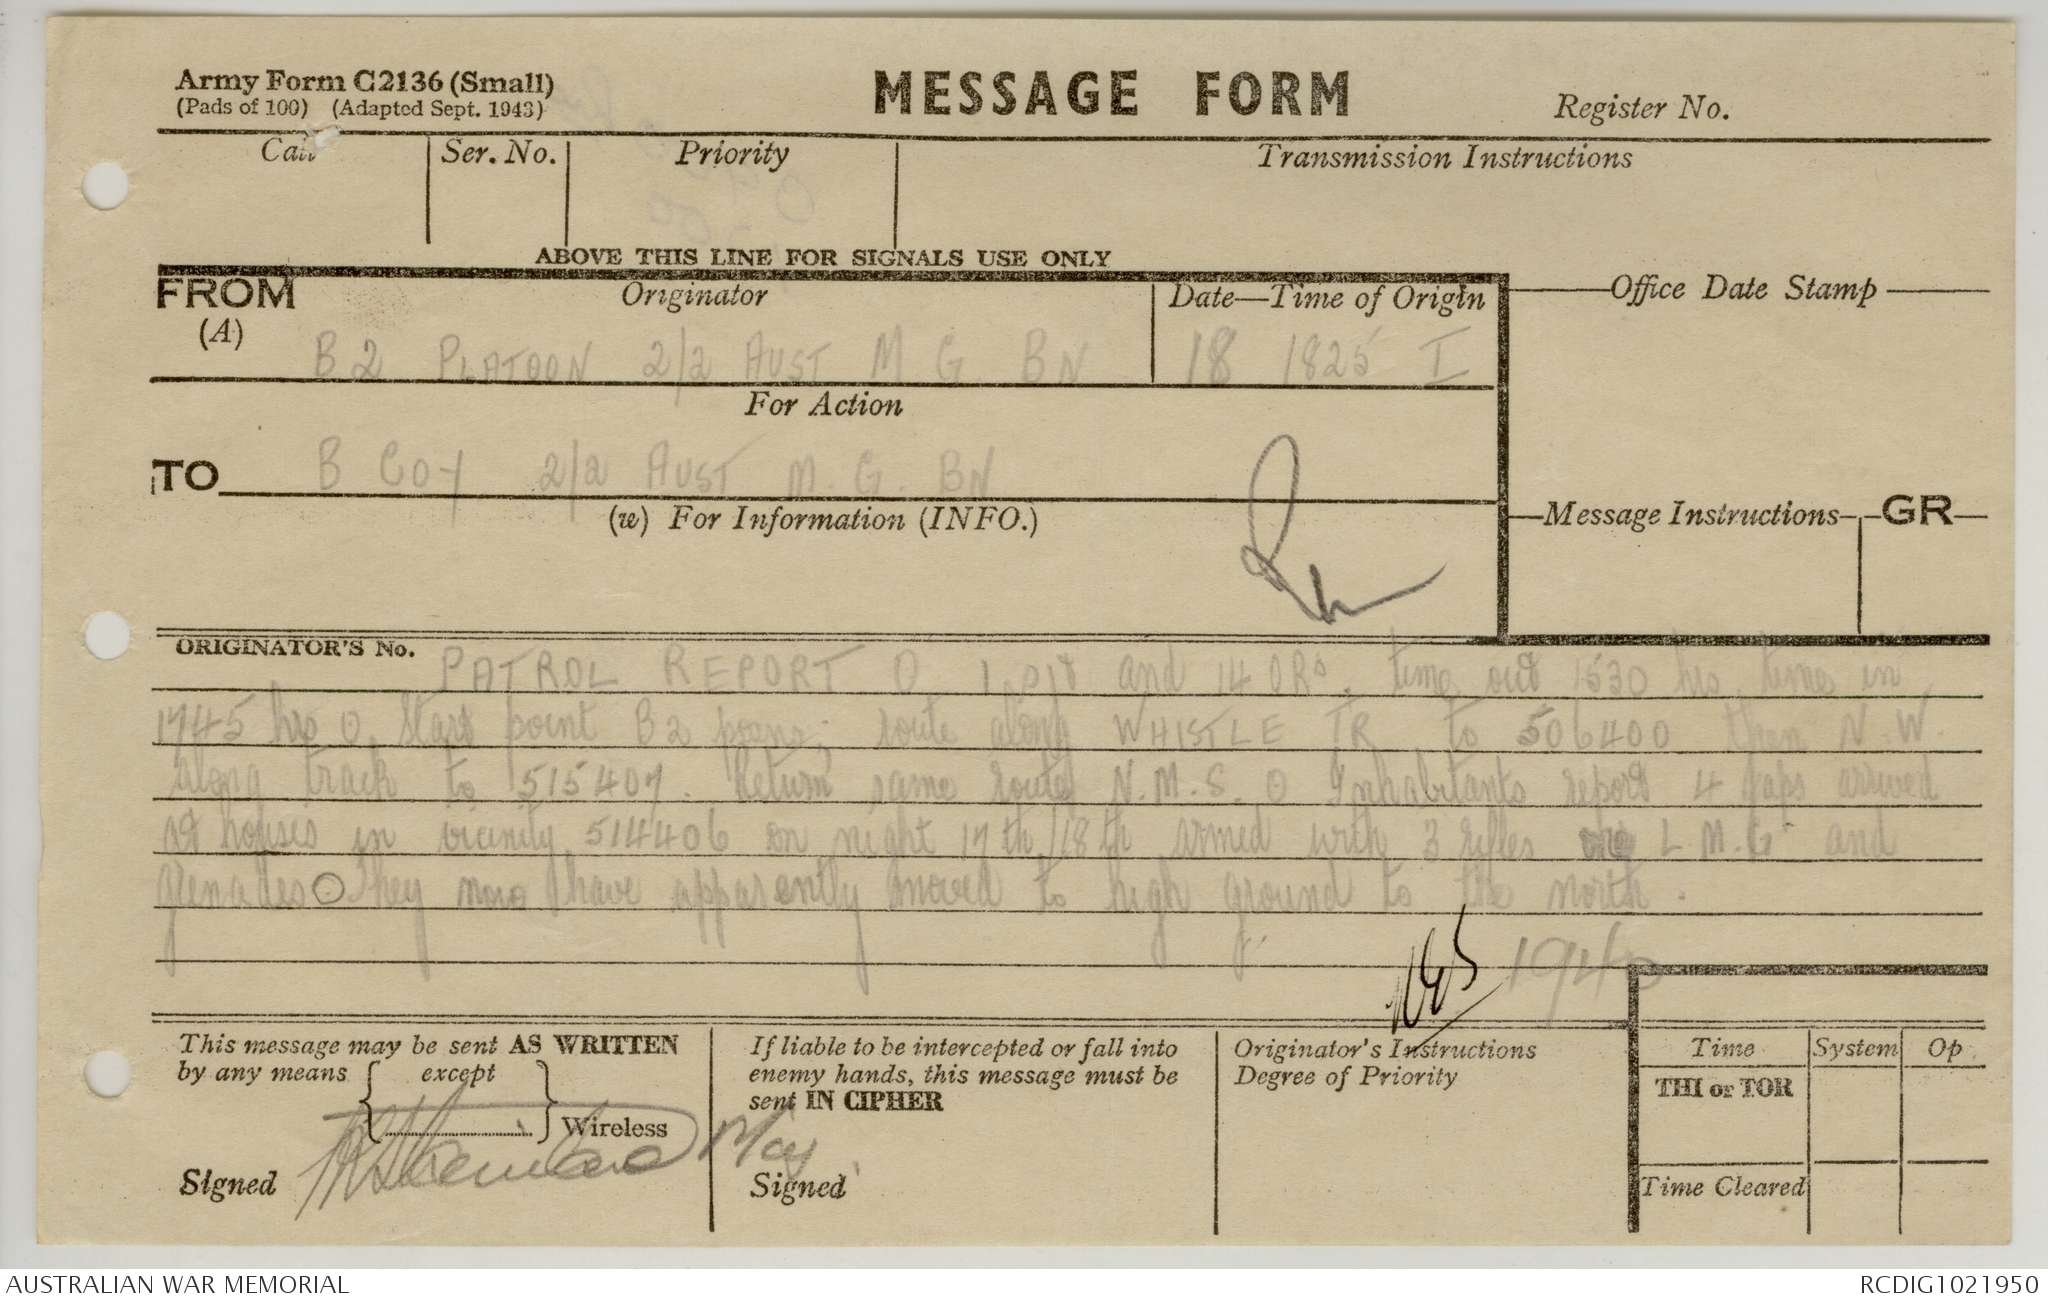 Army Form C2136 (Small)
(Pads of 100) (Adapted Sept. 1943)
MESSAGE FORM
Register No.
Call
Ser. No.
Priority
Transmission Instructions
ABOVE THIS LINE FOR SIGNALS USE ONLY
FROM
(A)
Originator
Date—Time of Origin
Office Date Stamp
B2 PLATOON 2/2 AUST M G BN
18 1825 I
For Action
TO
B COY 2/2 AUST M. G. BN
(w) For Information (INFO.)
Message Instructions
GR
ORIGINATOR'S No.
PATROL REPORT O 1 offr and 14 ORs. time out 1530 hrs time in
1745 hrs O Start point B2 posns; route along WHISTLE TR to 506400 then N.W.
along track to 515407. Return same route N.M.S. O Inhabitants report 4 Japs arrived
at houses in vicinity 514406 on night 17th/18th armed with 3 rifles one L M.G and
grenades O They now have apparently moved to high ground to the north.
1940
This message may be sent AS WRITTEN
by any means except
Wireless
Signed
If liable to be intercepted or fall into
enemy hands, this message must be
sent IN CIPHER
Signed
Originator's Instructions
Degree of Priority
Time
System
Op
THI or TOR
Time Cleared
AUSTRALIAN WAR MEMORIAL
RCDIG1021950